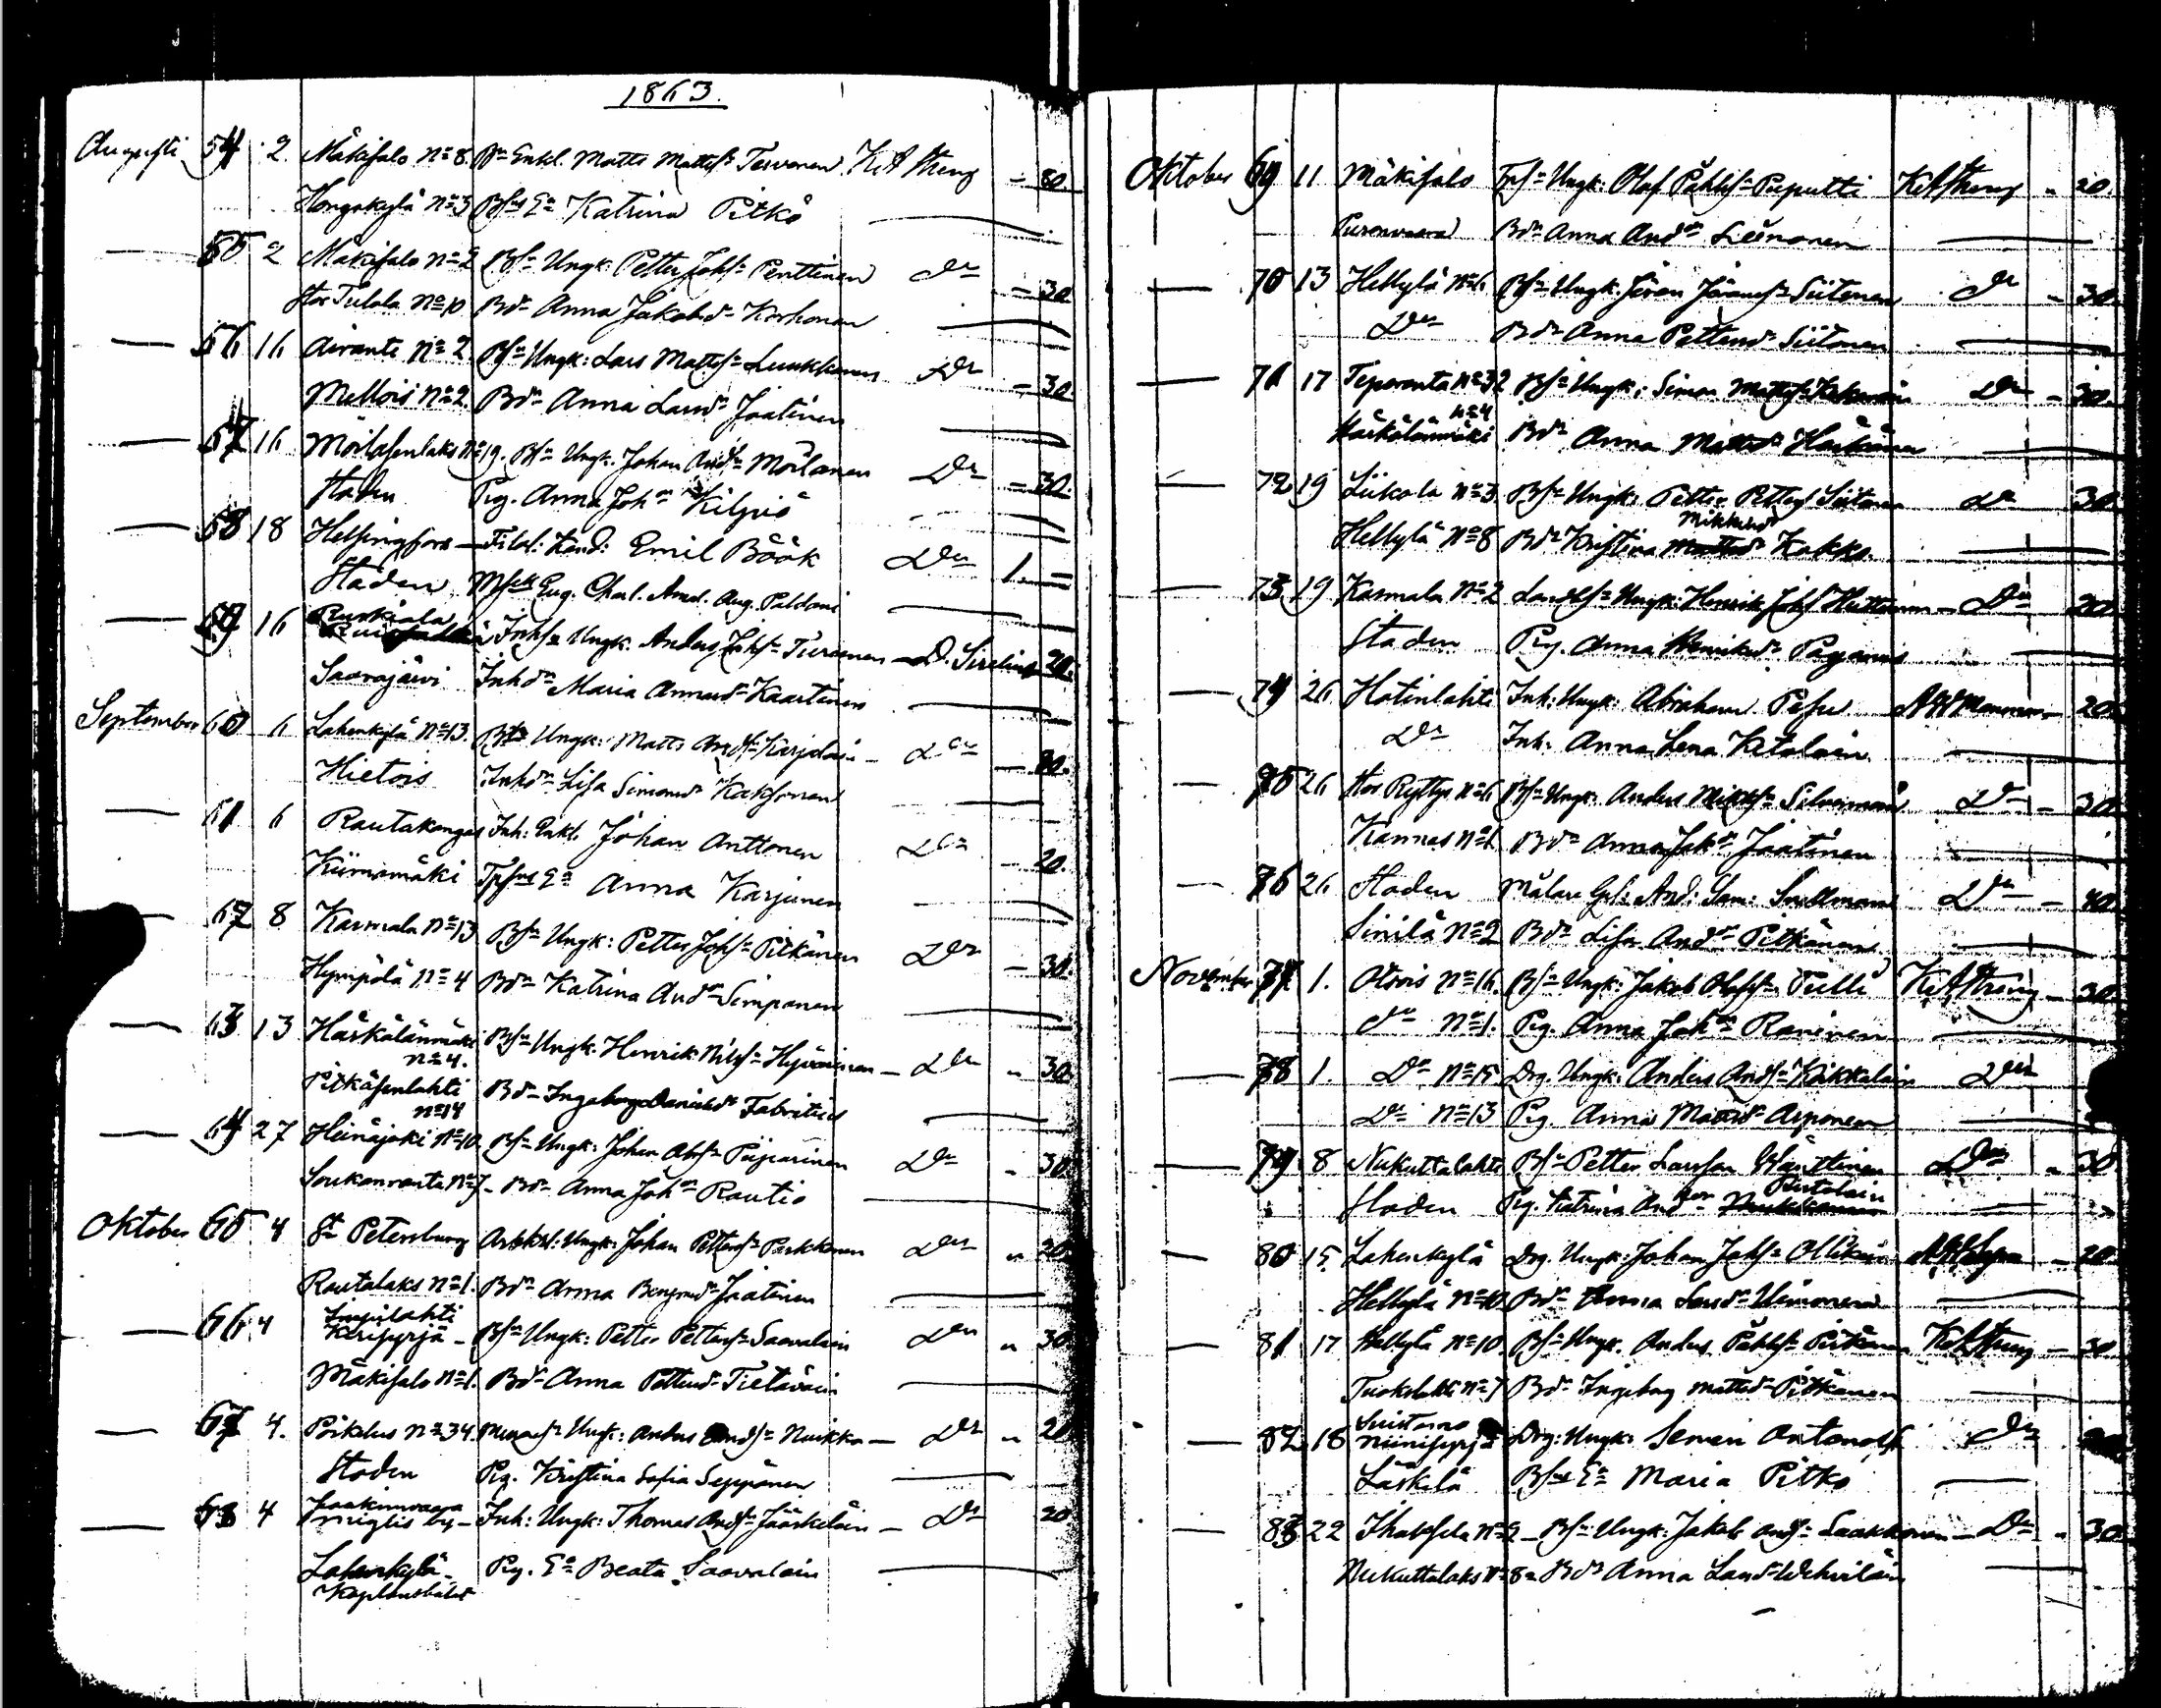 1863.
Augusti 54 2. Mäkisalo No 8. Bn Enkl. Matts Mattss Tervonen K. A. Streng - 80
Hongakylä No 3 Bsns Ea Katrina Pitkä
— 55 2 Mäkisalo No 2 Bsn Ungk: Petter Johss Penttinen Do - 30
Stor Tulola No 10 Bdr Anna Jakobsdr Korhonen
— 56 16 Airante No 2. Bsn Ungk: Lars Mattss Luukkonen Do - 30.
Mellois No 2. Bdr Anna Larsdr Jaatinen
— 57 16 Möilasenlaks No 19. Bsn Ungk. Johan Andss Möilanen Do - 30.
Staden Pig. Anna Johdr Kiljus
— 58 18 Helsingfors — Filol: Kand: Emil Böök Do 1. =
Staden Msell Eug. Charl. Amal. Aug. Paldani
— 59 16 Ruskiala Inhsn Ungk: Anders Johss Turunen — D. Sirelius 20.
Saarajärvi Inhdr Maria Annasdr Kaartinen
September 60 6 Lahenkylä No 13. Bsn Ungk: Matts Andss Karjalain - Do - 30.
Hietois Inhdr Lisa Simonsdr Kaksonen
— 61 6 Rautakangas Inh: Enkl. Johan Anttonen Do - 20.
Kiimamäki Tpsns Ea Anna Karjunen
— 62 8 Karmala No 13 Bsn Ungk: Petter Johss Pitkänen Do - 30.
Hympölä No 4 Bdr Katrina Anddr Simpanen
— 63 13 Härkälänmäki No 4. Bsn Ungk. Henrik Nilss Hyvärinen - Do " 30
Pitkäsenlahti No 14 Bdr Ingeborg Danielsdr Fabritius
— 64 27 Heinäjoki No 10. Bsn Ungk: Johan Abrss Pajarinen Do " 30
Soukanranta No 7 - Bdr Anna Johdr Rautio
Oktober 65 4 St Petersburg Arbkl: Ungk: Johan Petterss Parkkonen Do " 20
Rautalaks No 1. Bdr Anna Benjamsdr Jaatinen
— 66 4 Impilahti Kerisyrjä - Bsn Ungk: Petter Petterss Saavalain Do " 30
Mäkisalo No 1. Bdr Anna Pettersdr Tietäväin
— 67 4. Ungk: Anders Andss Nuikka — Do " 20
Staden Pig. Kristina Sofia Seppänen
— 68 4 Jaakimvaara Inh: Ungk: Thomas Andss Jääskeläin — Do 20
Lahenkylä - Kaplansbolet Pig. Ea Beata Saavalain
Oktober 69 11 Mäkisalo Tpsn Ungk: Olof Påhlss Puputti K. A. Streng " 20.
Purenvaara Bdr Anna Anddr Leinonen
— 70 13 Hellylä No 6 Bsn Ungk. Jöran Jöranss Siitonen Do - 30.
Do Bdr Anna Pettersdr Siitonen
— 71 17 Teporanta No 32 Bsn Ungk: Simon Mattss Do - 30.
Härkälänmäki No 4 Bdr Anna Mattsdr Härkönen
— 72 19 Liikola No 3 Bsn Ungk: Petter Petterss Siitonen Do 30.
Hellylä No 8 Bdr Kristina Mikkelsdr Kokko.
— 73 19 Karmala No 2 Landbsn Ungk: Henrik Johss Huttunen - Do 20
Staden Pig. Anna Henriksdr Paganus
— 74 26 Hotinlahti Inh: Ungk: Abraham Pesu 20
Do Inh. Anna Lena Ketolain
— 75 26 Stor Ryttyo No 6 Bsn Ungk: Anders Mikkss Silvennoin Do - 30.
Kannas No 1 Bdr Anna Johdr Jaatinen
— 76 26 Staden Målare Ges: And: Sam: Snellman Do - 40
Sinilä No 2 Bdr Lisa Anddr Pitkänen
November 77 1. Otsois No 16. Bsn Ungk: Jakob Olofss Tulli K. A. Streng - 30
Do No 1. Pig. Anna Johdr Raninen
— 78 1. Do No 15. Drg. Ungk: Anders Andss Kokkalain Do
Do No 13 Pig Anna Mattsdr Arponen
— 79 8 Nukuttalahti Bsn Petter Larsson Wänttinen Do " 30.
Staden Pig. Katrina Anddr Rintalain
— 80 15. Lahenkylä Drg. Ungk: Johan Johss Ollikain - 20.
Hellylä No 10. Bdr Anna Larsdr Uimonen
— 81 17 Hellylä No 10. Bsn Ungk. Anders Påhlss Pitkänen K. A. Streng - 30
Tuokslahti No 7 Bdr Ingeborg Mattsdr Pitkänen
— 82 18 Suistamo Niinisyrjä Drg: Ungk: Semen Antonoff Do
Läskelä Bsns Ea Maria Pitko
— 83 22 Ihatsela No 2 - Bsn Ungk: Jakob Andss Laakkonen - Do " 30.
Nukuttalaks No 8 - Bdr Anna Larsdr Wehviläin